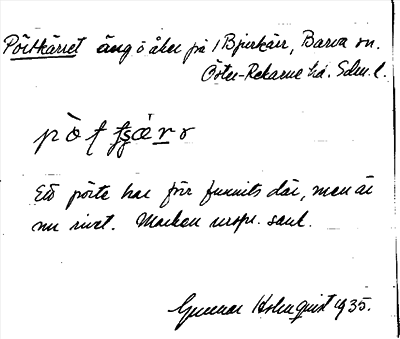 Pörtkärret äng o åker på 1 Bjerkärr, Barva sn.
Öster-Rekarne hd. Sdm. l.
Ett pörte har förr funnits där, men är
nu rivet. Marken urspr. sank.
Gunnar Holmquist 1935.